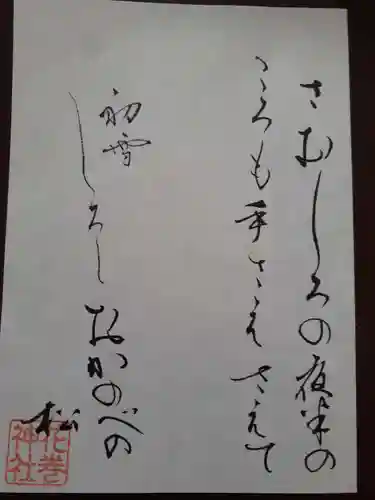 さむしろの夜半の
ころも手さえさえて
初雪
しろしおかのべの
松
花巻
神社